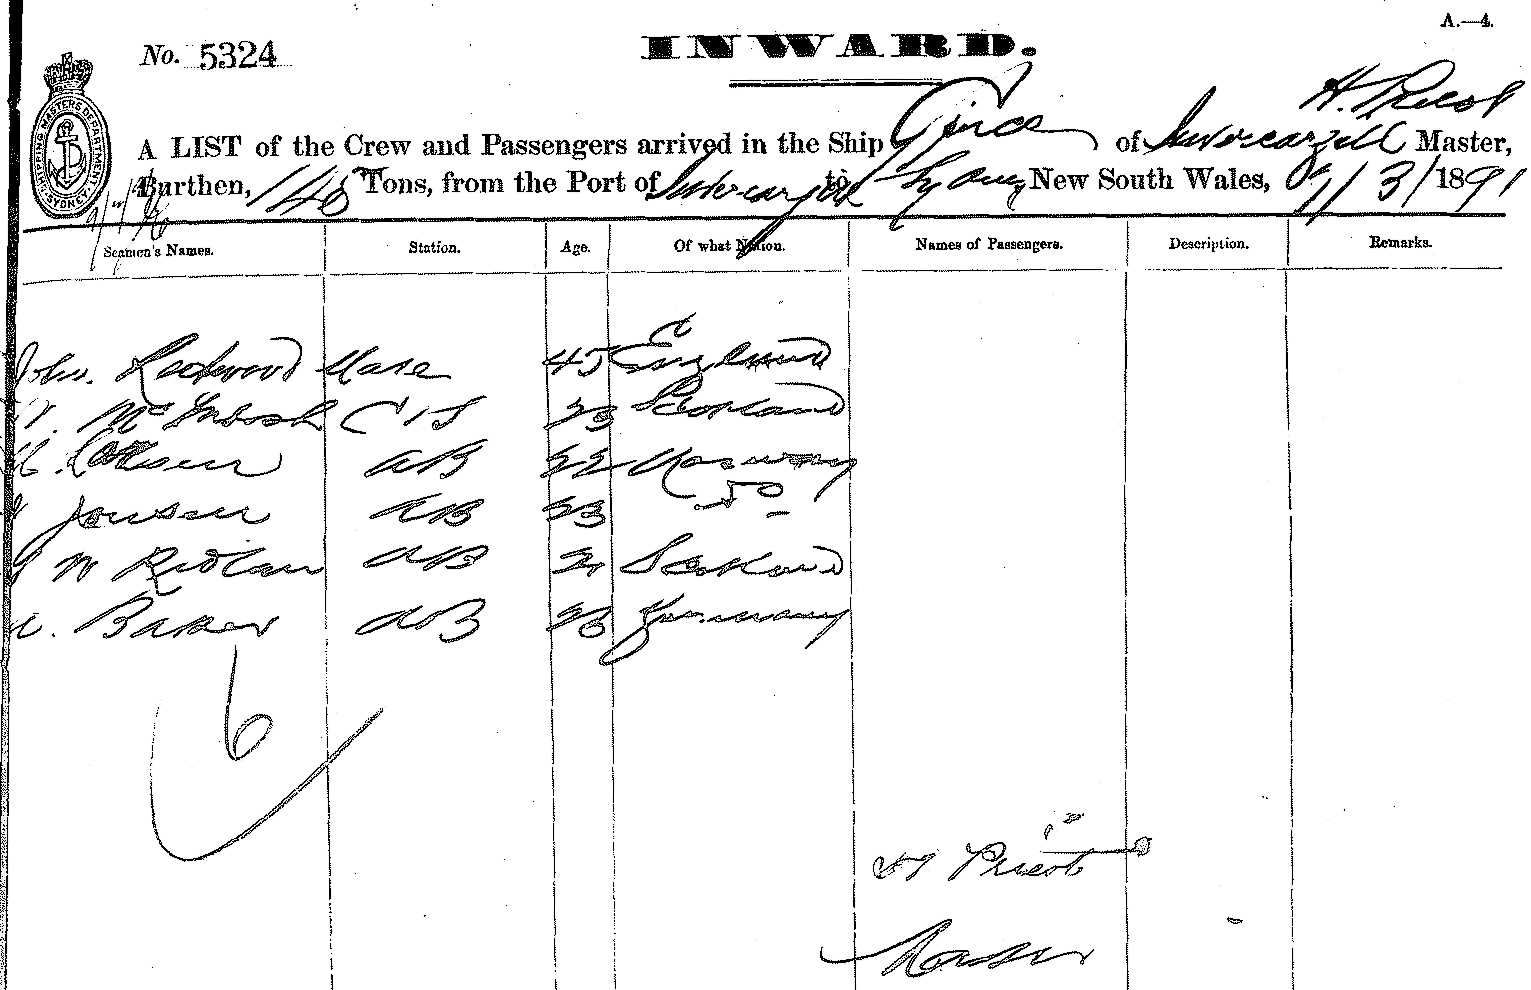 A.—4.
No. 5324
INWARD.
SHIPPING MASTERS DEPARTMENT SYDNEY
H. Priest
A LIST of the Crew and Passengers arrived in the Ship Circe of Invercargill Master,
Burthen, 148 Tons, from the Port of Invercargill to Sydney New South Wales, 9/3/1891
Seamen's Names. Station. Age. Of what Nation. Names of Passengers. Description. Remarks.
John. Lockwood Mate 45 England
McIntosh C & S 23 Scotland
AB 22 Norway
Jensen AB 23 Do
AB 21 Scotland
Baker AB 23 Germany
6
H Priest
Master